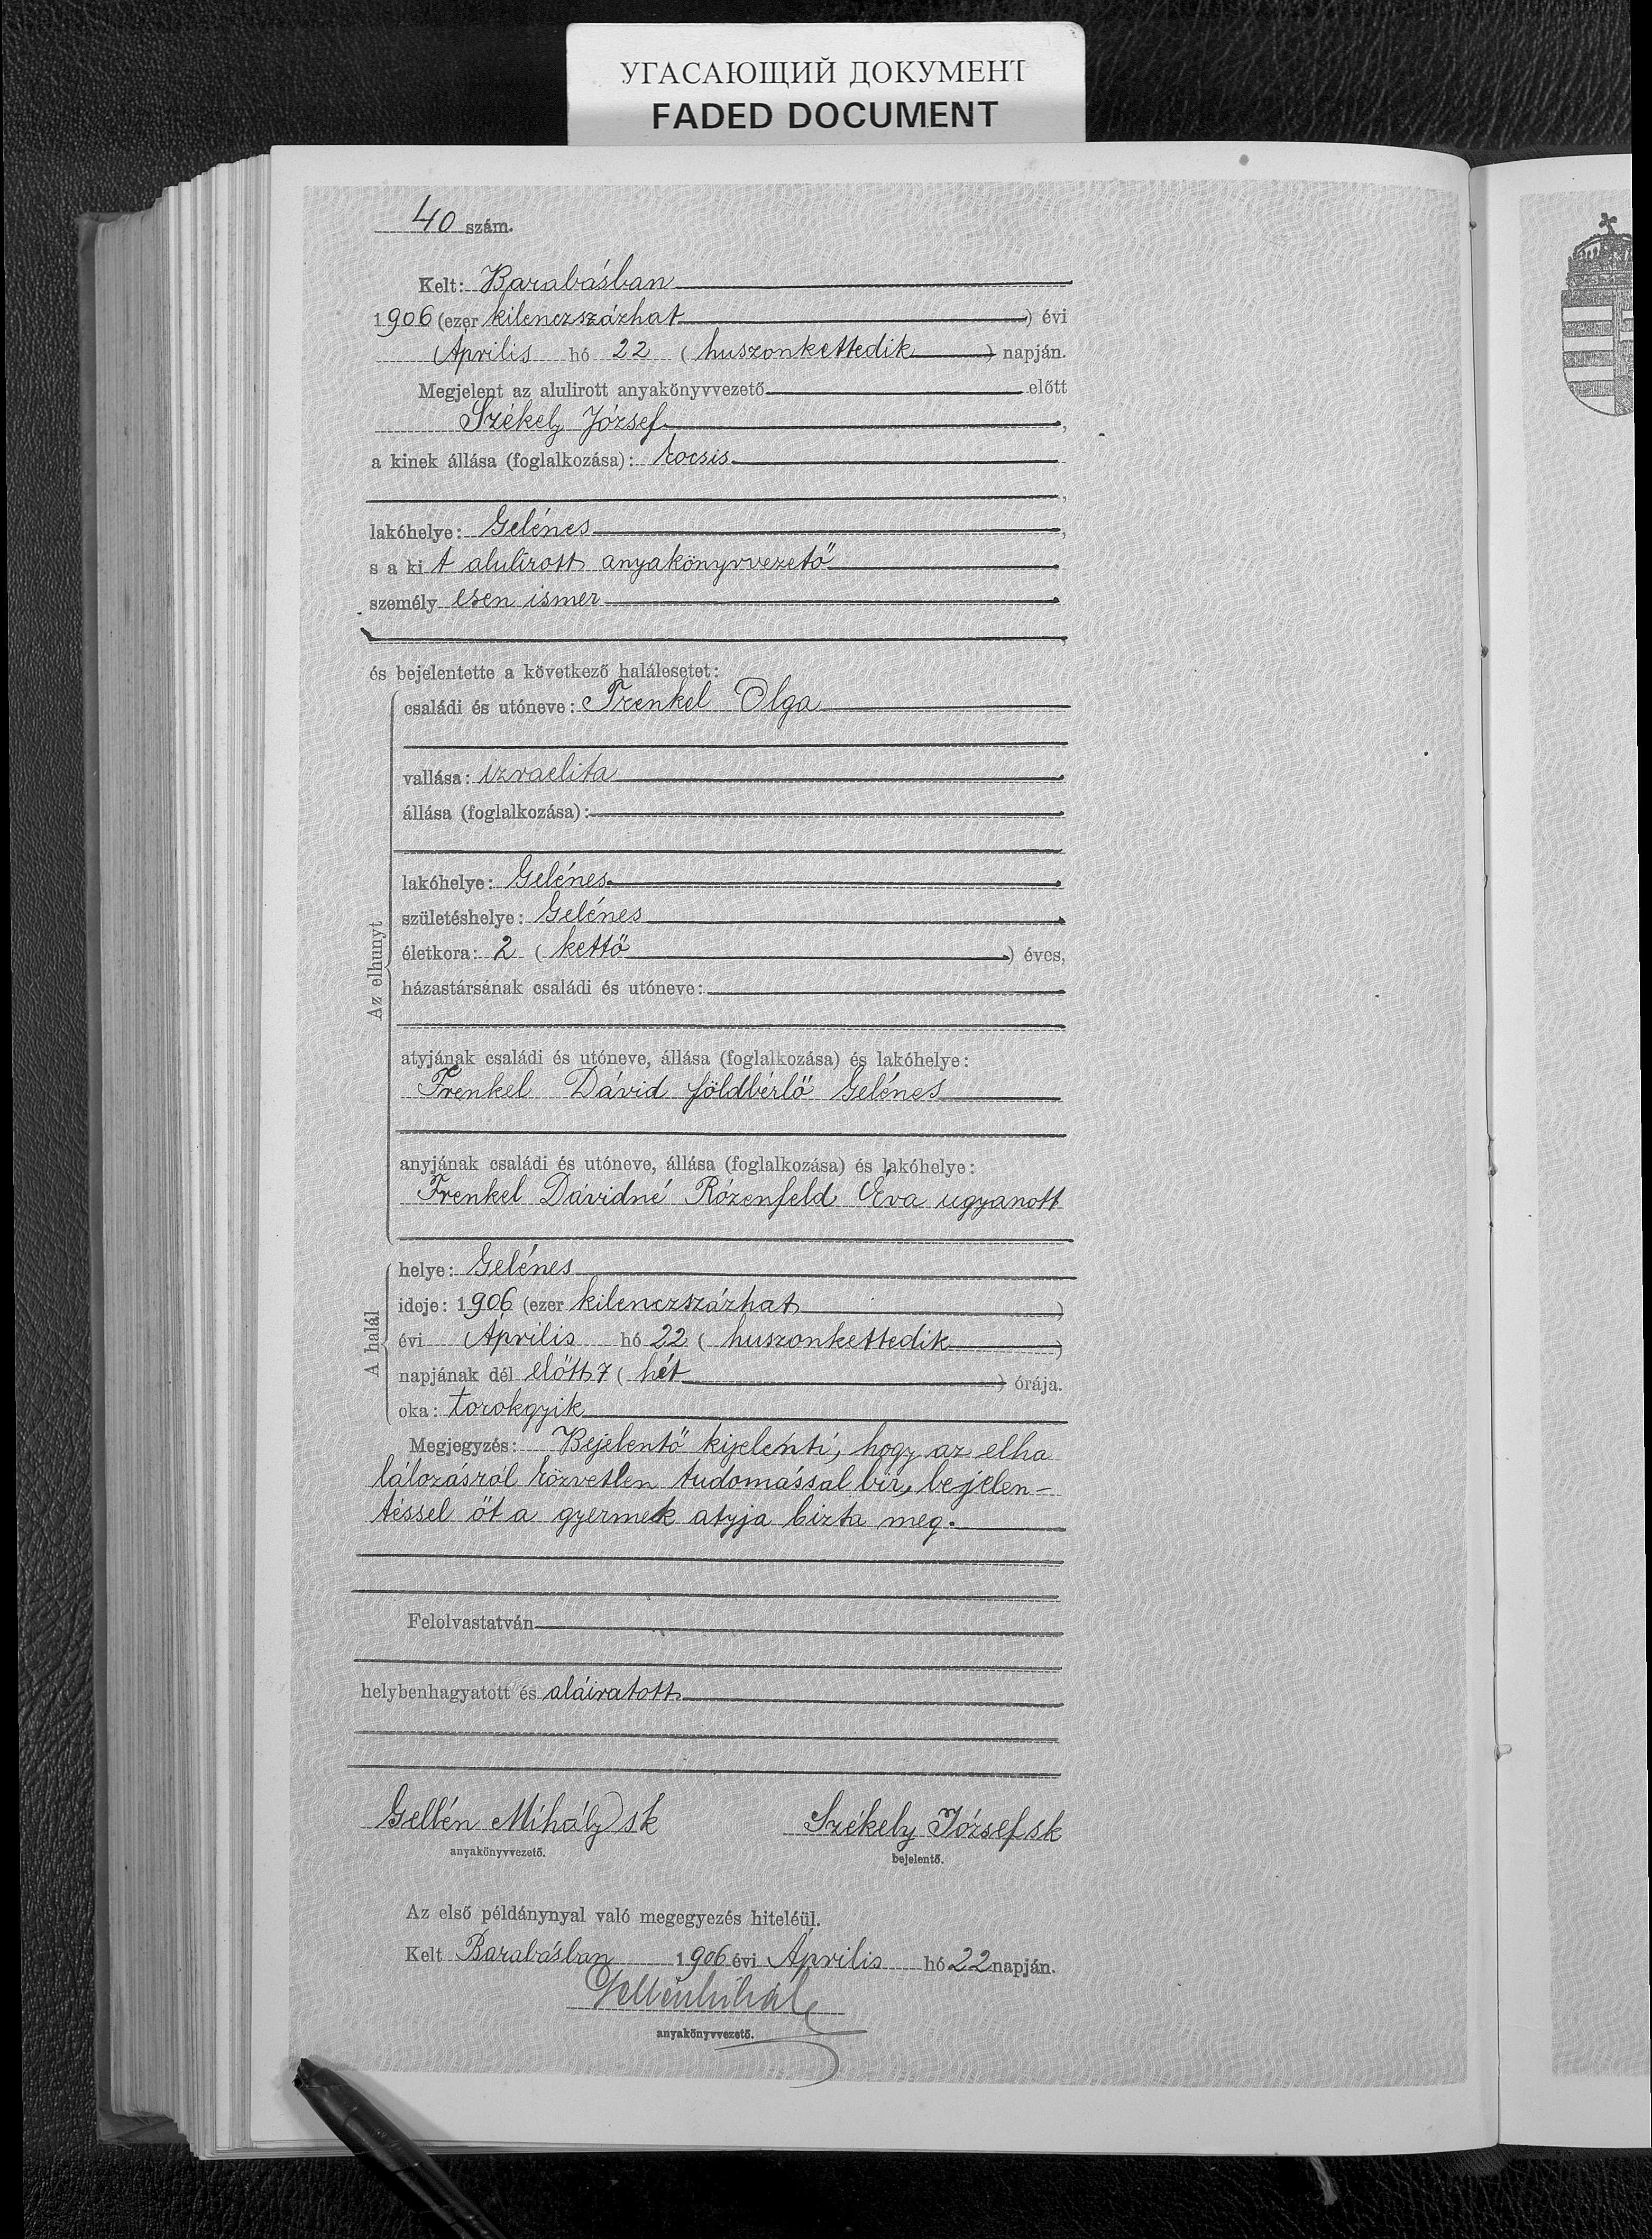 УГАСАЮЩИЙ ДОКУМЕНТ
FADED DOCUMENT
40 szám.
Kelt: Barabásban
1906 (ezer kilenczszázhat) évi
Április hó 22 (huszonkettedik) napján.
Megjelent az alulirott anyakönyvvezető előtt
Székely József,
a kinek állása (foglalkozása): kocsis
lakóhelye: Gelénes,
s a kit alulírott anyakönyvvezető
személyesen ismer
és bejelentette a következő halálesetet:
Az elhunyt
családi és utóneve: Frenkel Olga
vallása: izraelita
állása (foglalkozása):
lakóhelye: Gelénes
születéshelye: Gelénes
életkora: 2 (kettő) éves,
házastársának családi és utóneve:
atyjának családi és utóneve, állása (foglalkozása) és lakóhelye:
Frenkel Dávid földbérlő Gelénes
anyjának családi és utóneve, állása (foglalkozása) és lakóhelye:
Frenkel Dávidné Rózenfeld Éva ugyanott
A halál
helye: Gelénes
ideje: 1906 (ezer kilenczszázhat)
évi Április hó 22 (huszonkettedik)
napjának dél előtt 7 (hét) órája.
oka: torokgyik
Megjegyzés: Bejelentő kijelenti, hogy az elha
lálozásról közvetlen tudomással bír, bejelen-
téssel őt a gyermek atyja bizta meg.
Felolvastatván
helybenhagyatott és aláiratott
Gellén Mihály sk Székely József sk
anyakönyvvezető. bejelentő.
Az első példánynyal való megegyezés hiteléül.
Kelt Barabásban 1906 évi Április hó 22 napján.
Gellén Mihály
anyakönyvvezető.